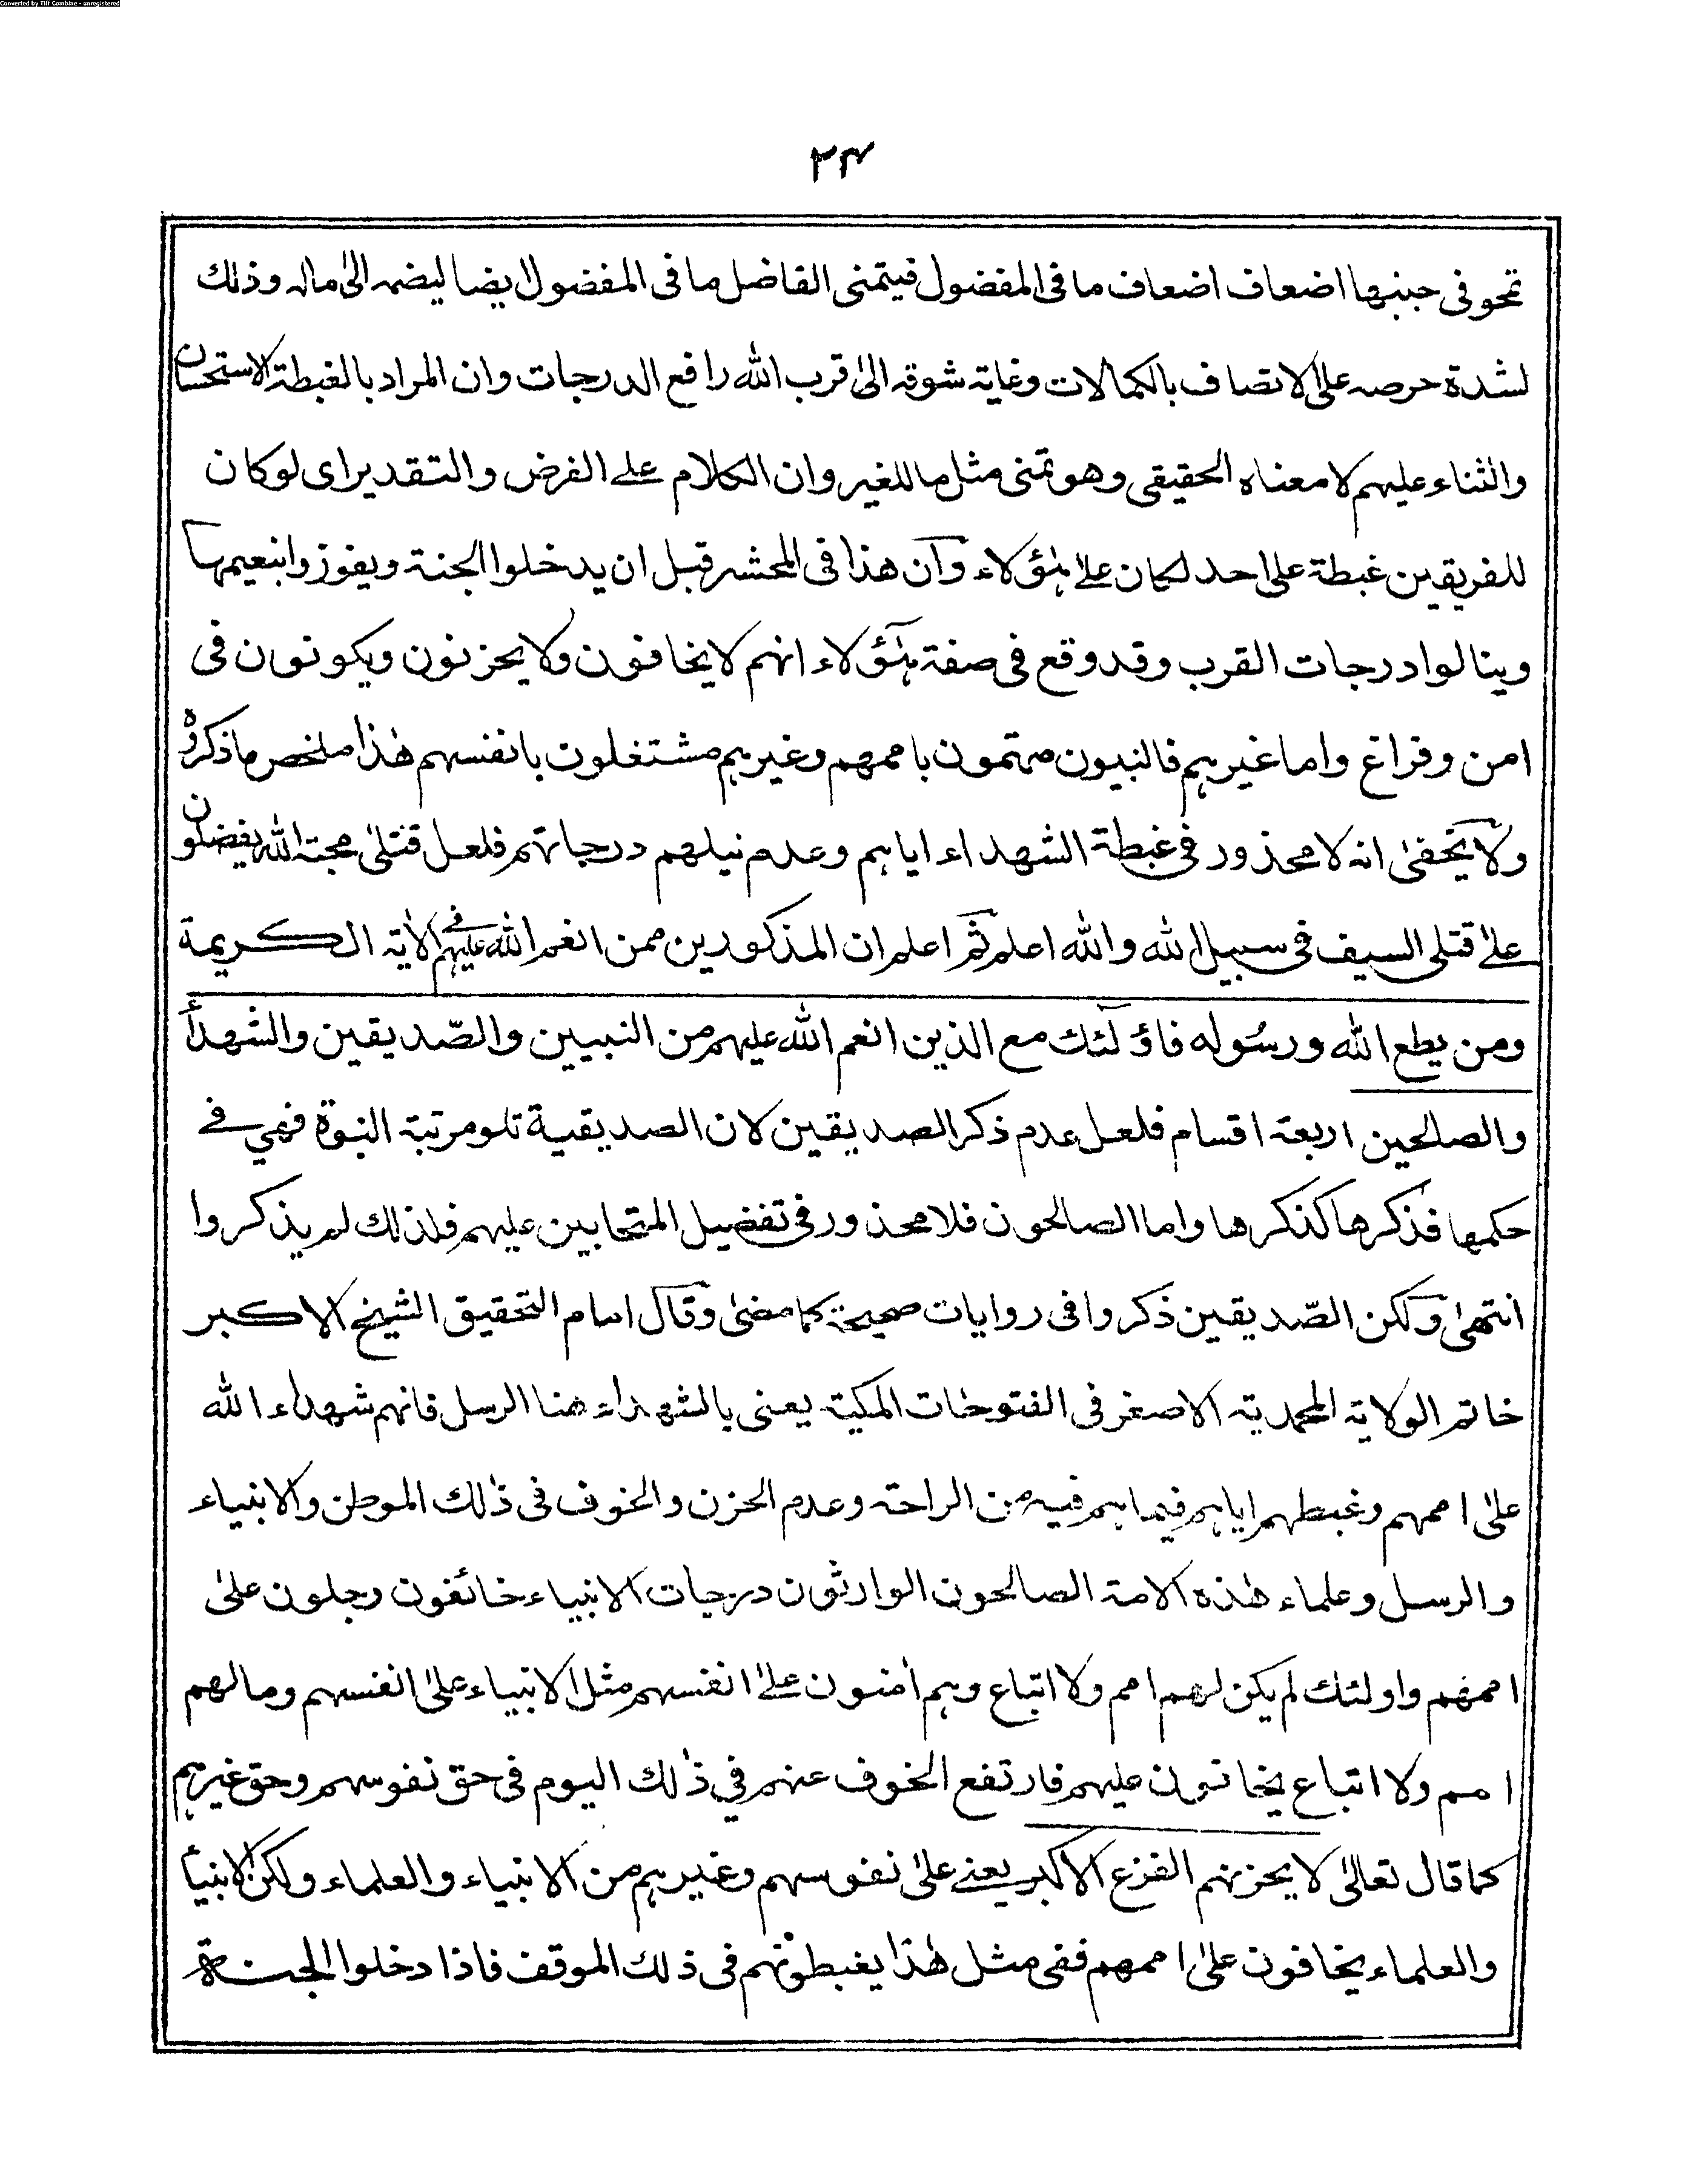 Converted by Tiff Combine - unregistered
٢٤
تمحو فى جنبها اضعاف اضعاف ما فى المفضول فيتمنى الفاضل ما فى المفضول ايضا ليضمه الىٰ ماله وذلك
لشدة حرصه على الاتصاف بالكمالات وغاية شوقه الىٰ قرب الله رافع الدرجات وان المراد بالغبطة الاستحسان
والثناء عليهم لا معناه الحقيقى وهو تمنى مثل ما للغير وان الكلام على الفرض والتقدير اى لو كان
للفريقين غبطة على احد لكان على هٰؤلاء وآن هذا فى المحشر قبل ان يدخلوا الجنة ويفوزوا بنعيمها
وينالوا درجات القرب وقد وقع فى صفة هٰؤلاء انهم لا يخافون ولا يحزنون ويكونون فى
امن وفراغ واما غيرهم فالنبيون مهتمون باممهم وغيرهم مشتغلون بانفسهم هٰذا ملخص ما ذكروه
ولا يخفىٰ انه لا محذور فى غبطة الشهداء اياهم وعدم نيلهم درجاتهم فلعل قتلىٰ محبة الله يفضلون
علىٰ قتلى السيف فى سبيل الله والله اعلم ثم اعلم ان المذكورين ممن انعم الله عليهم فى الاٰية الكريمة
ومن يطع الله ورسُوله فاولٓئك مع الذين انعم الله عليهم من النبيين والصّديقين والشهدأ
والصالحين اربعة اقسام فلعل عدم ذكر الصديقين لان الصديقية تلو مرتبة النبوة فهى فى
حكمها فذكرها كذكرها واما الصالحون فلا محذور فى تفضيل المتحابين عليهم فلذلك لم يذكروا
انتهىٰ ولكن الصّديقين ذكروا فى روايات صحيحة كما مضىٰ وقال امام التحقيق الشيخ الاكبر
خاتم الولاية المحمدية الاصغر فى الفتوحات المكية يعنى بالشهداء هنا الرسل فانهم شهداء الله
علىٰ اممهم وغبطهم اياهم فيما هم فيه من الراحة وعدم الحزن والخوف فى ذٰلك الموطن والانبياء
والرسل وعلماء هٰذه الامة الصالحون الوارثون درجات الانبياء خائفون وجلون علىٰ
اممهم واولئك لم يكن لهم امم ولا اتباع وهم اٰمنون علىٰ انفسهم مثل الانبياء علىٰ انفسهم وما لهم
امم ولا اتباع يخافون عليهم فارتفع الخوف عنهم في ذٰلك اليوم فى حق نفوسهم وحق غيرهم
كما قال تعالىٰ لا يحزنهم الفزع الاكبر يعنى علىٰ نفوسهم وغيرهم من الانبياء والعلماء ولكن الانبيأ
والعلماء يخافون علىٰ اممهم ففى مثل هٰذا يغبطونهم فى ذلك الموقف فاذا دخلوا الجنة